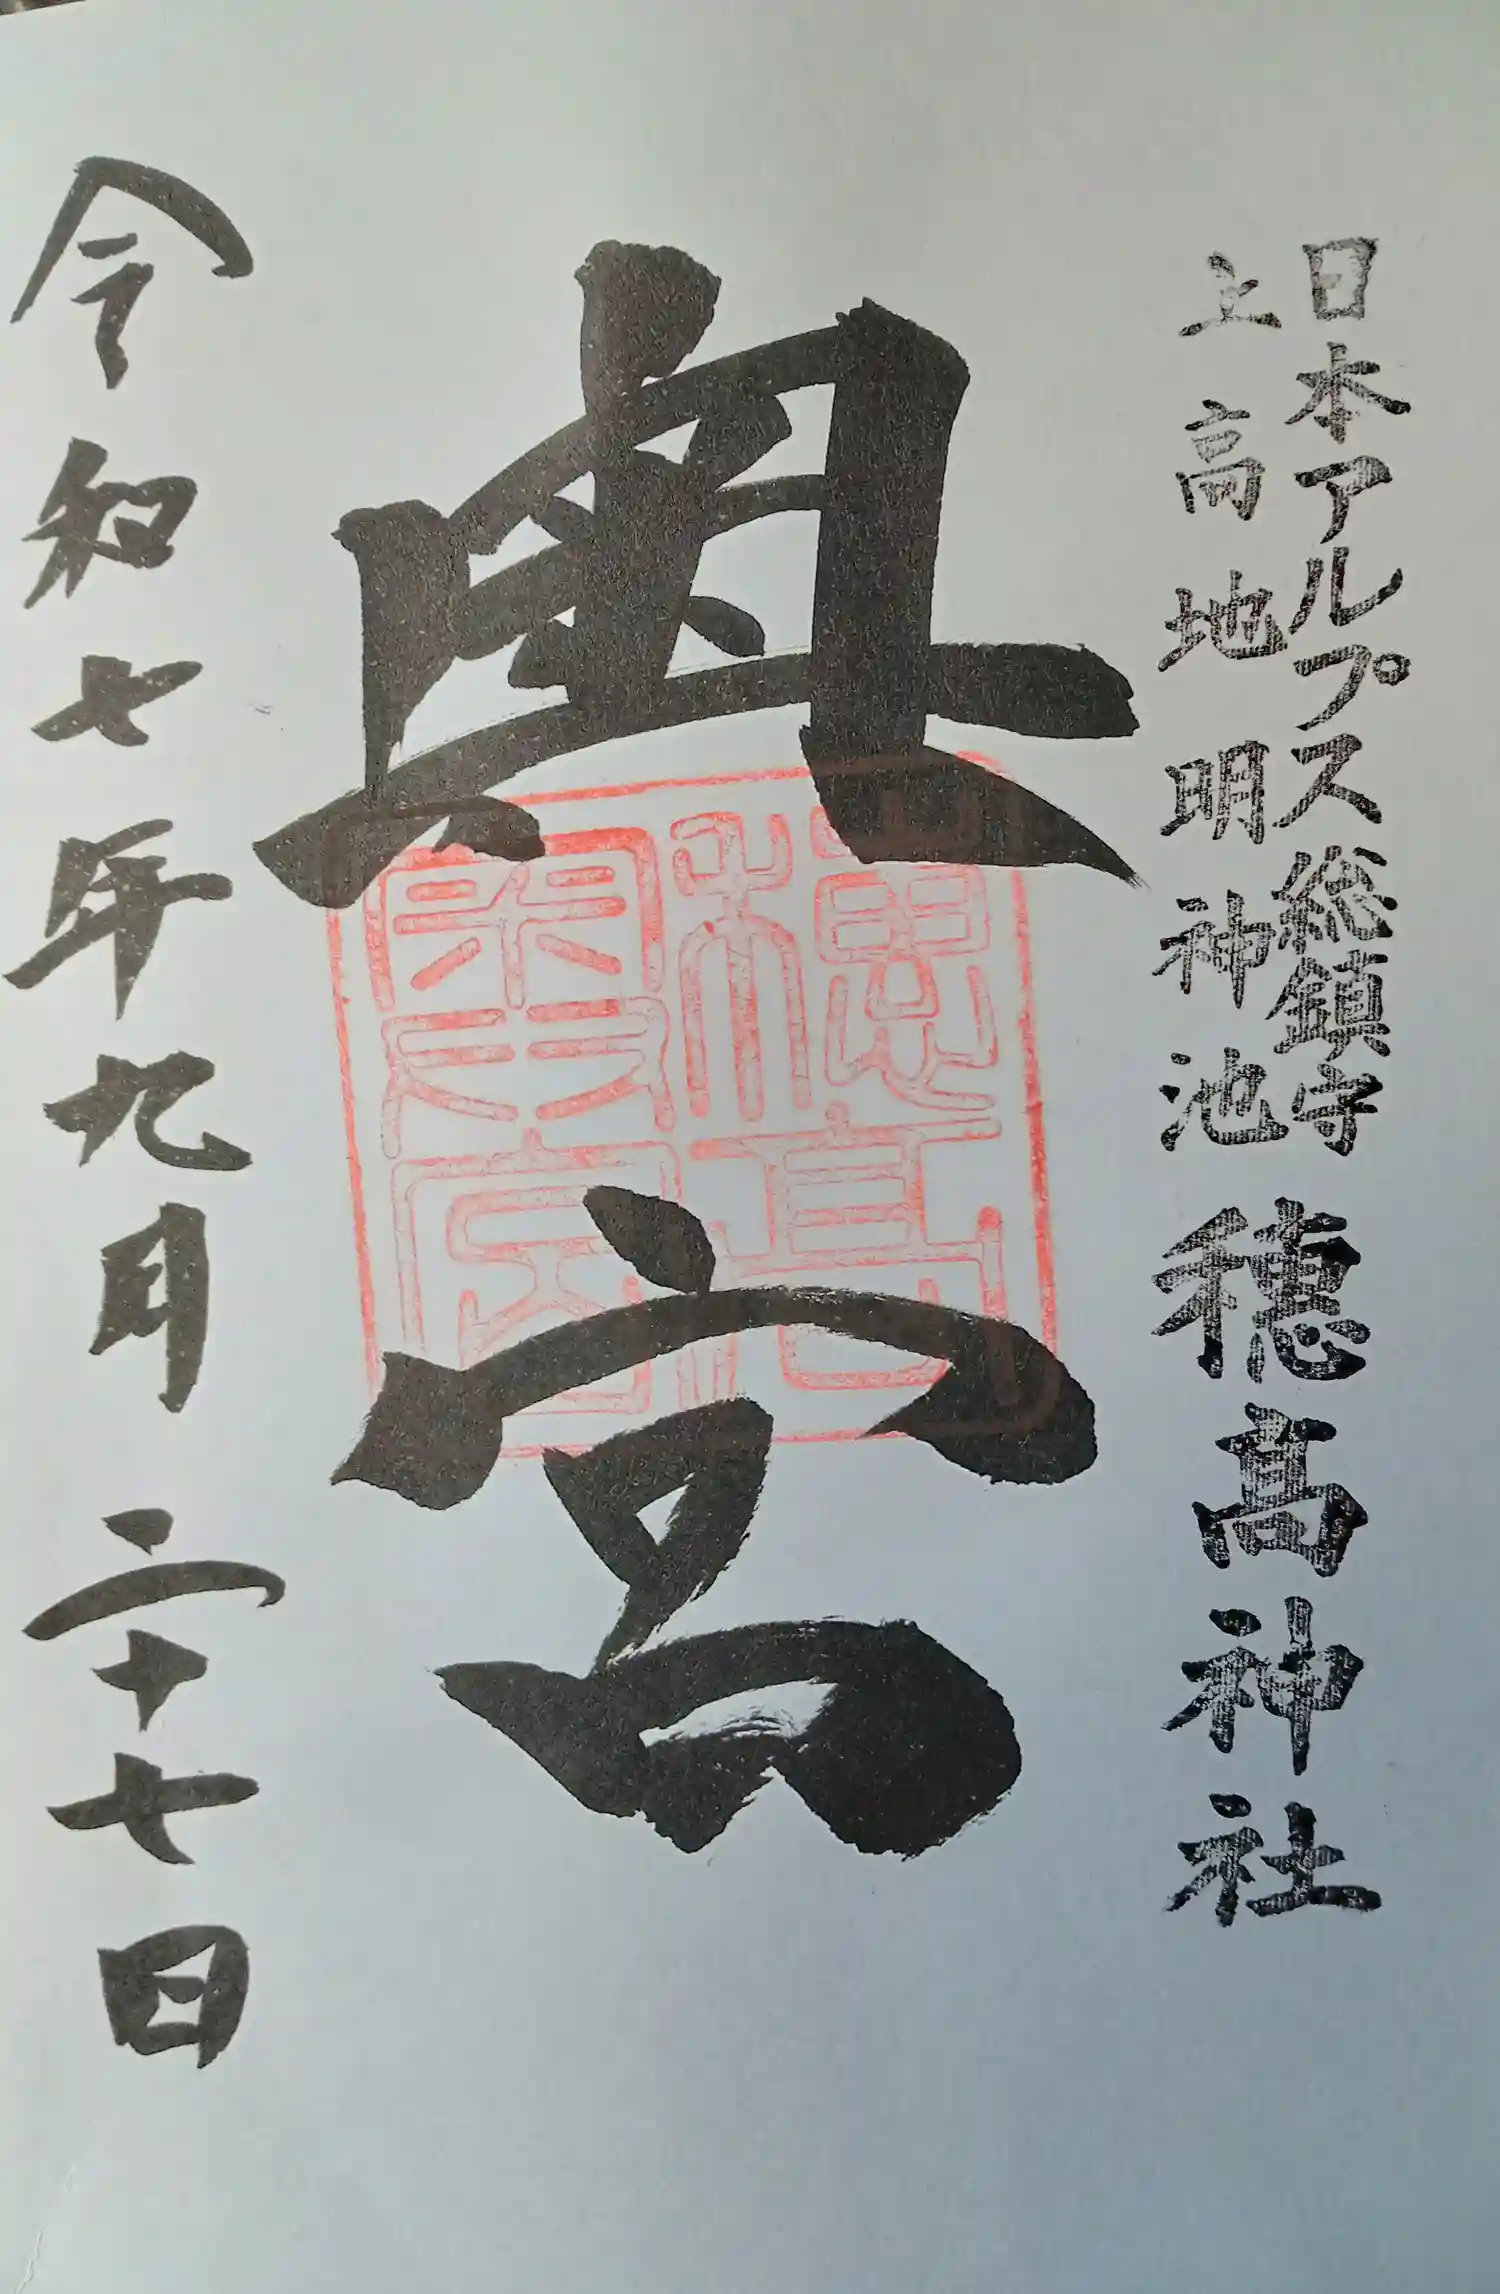 日本アルプス総鎮守
上高地明神池
穂髙神社
奥宮
穂高奥宮
令和七年九月二十七日